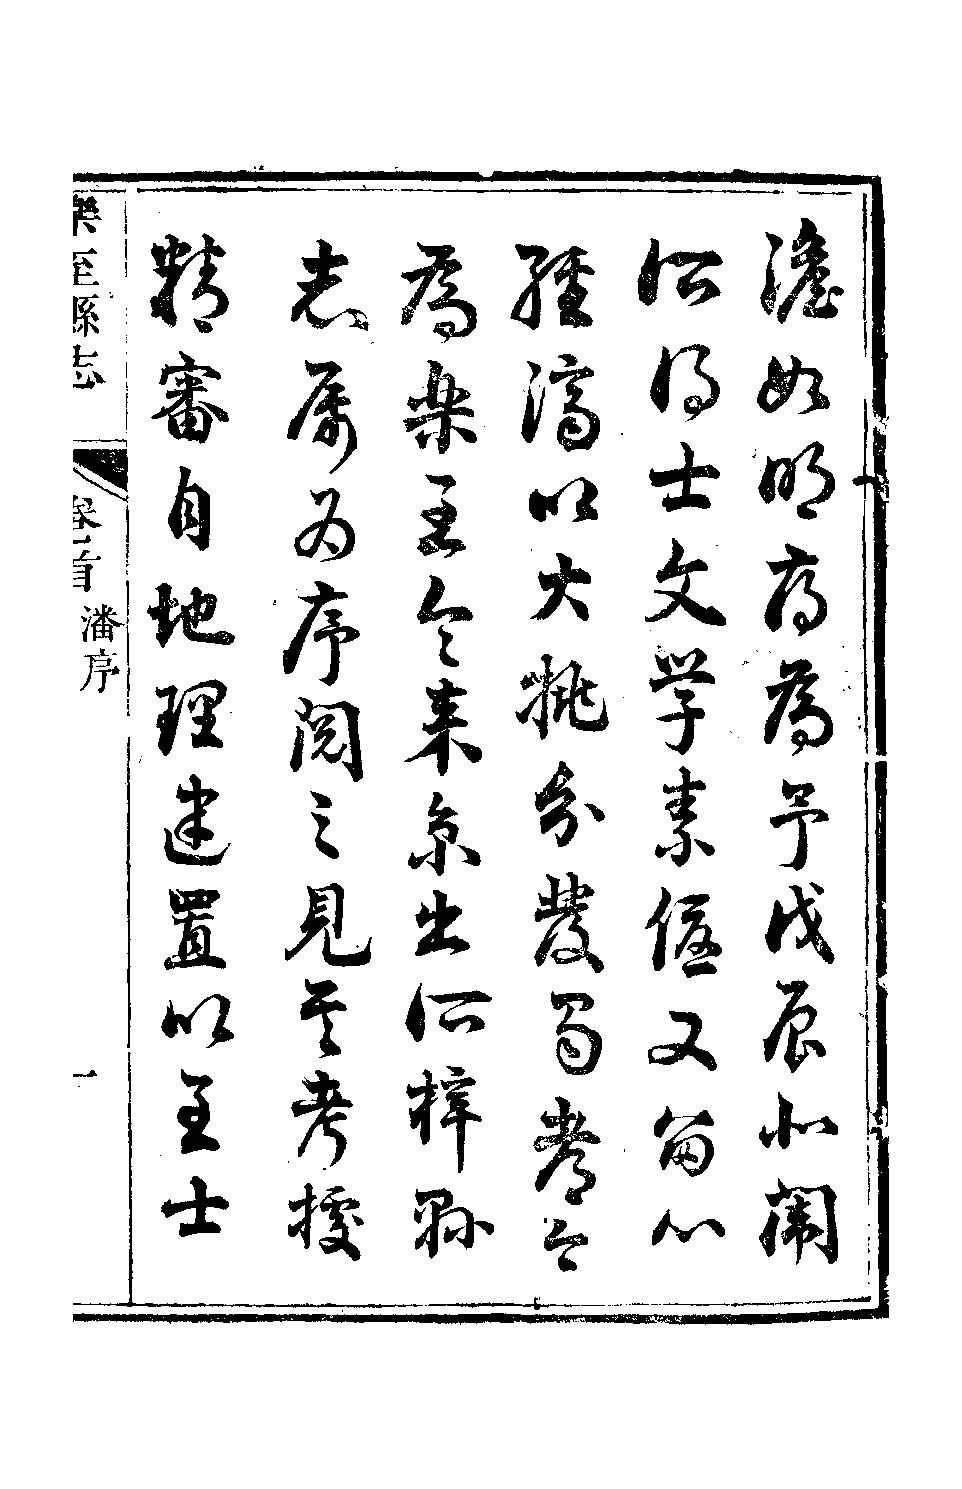 澹如明府為予戊辰北闈
所得士文學素優又留心
經濟以大挑分發蜀省今
為樂至令來京出所梓縣
志屬為序閱之見其考據
精審自地理建置以至士
樂至縣志 卷首 潘序 一